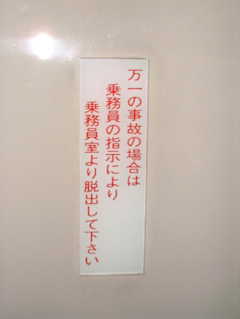 万一の事故の場合は
乗務員の指示により
乗務員室より脱出して下さい